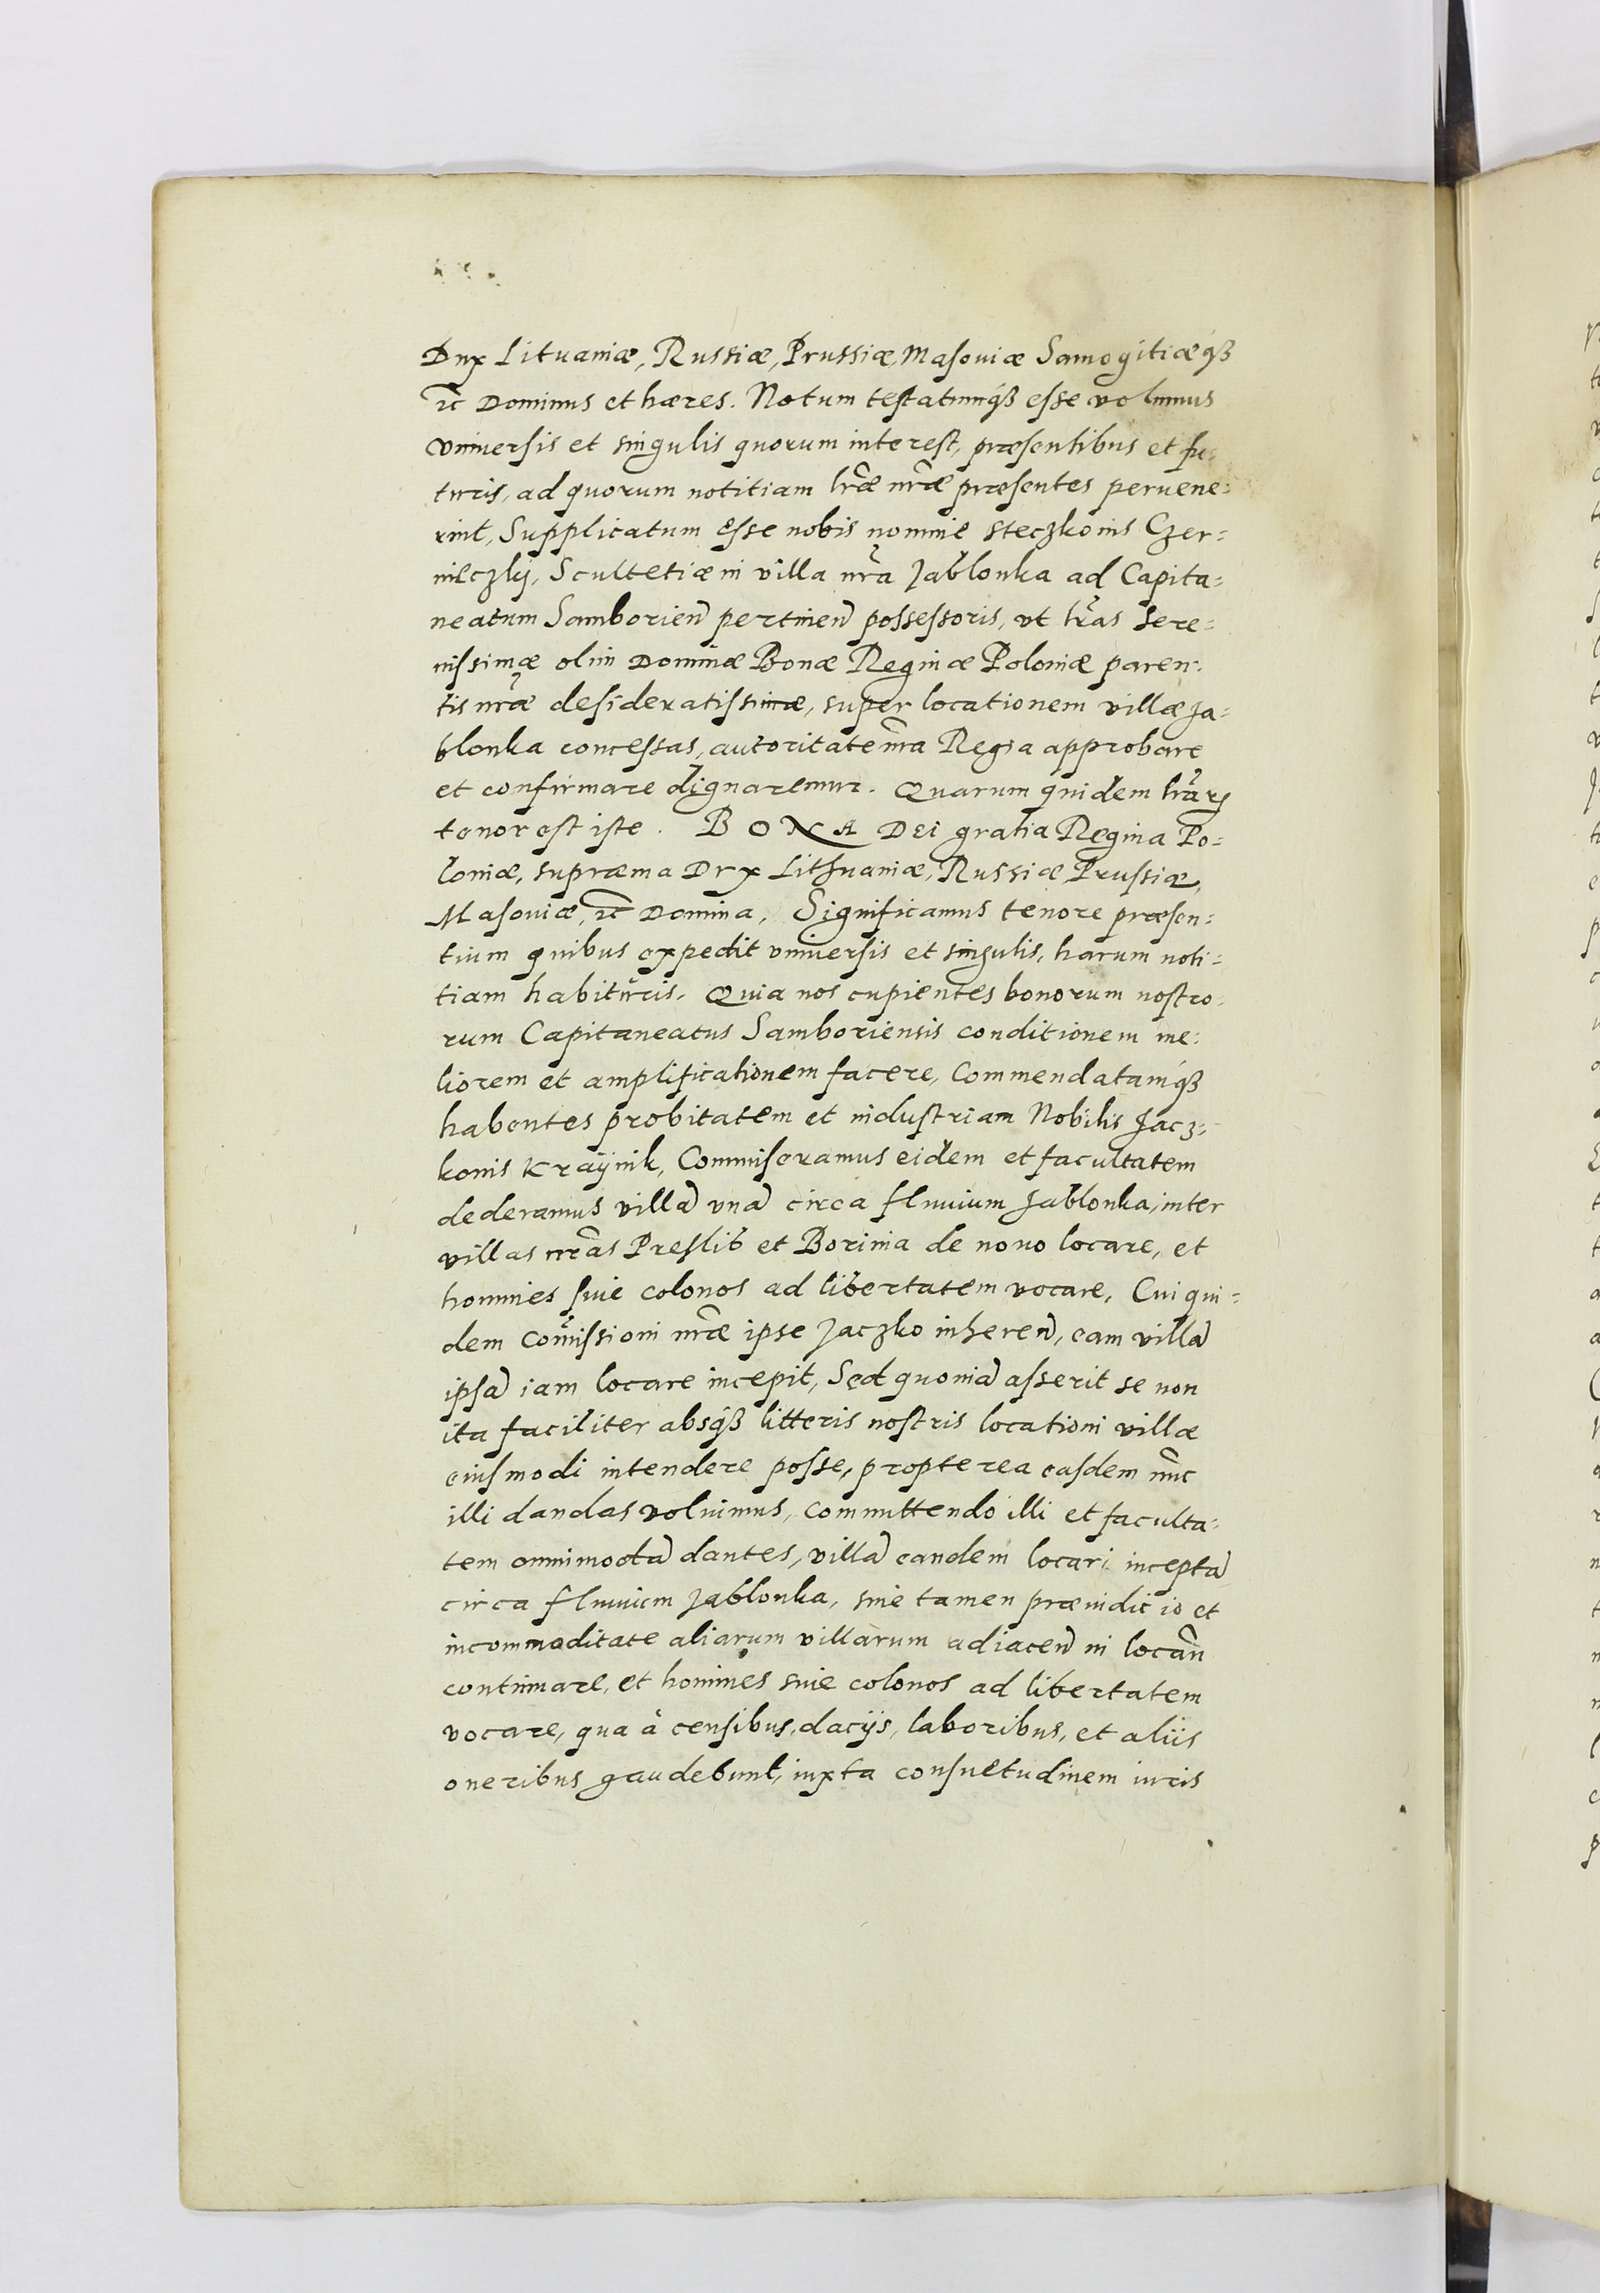 Dux Lituaniæ, Russiæ, Prussiæ, Masouiæ Samogitiæq́ꝫ
ꝛc̃ Dominus et hæres. Notum testatumq́ꝫ esse volumus
vniuersis et singulis quorum interest, præsentibus et fu=
turis, ad quorum notitiam lr̃æ nr̃æ præsentes peruene=
rint, Supplicatum esse nobis nomine Steczkonis Czer=
nieczkij, Scultetiæ in villa nr̃a Jablonka ad Capita=
neatum Samborien̄ pertinen̄ possessoris, vt lr̃as Sere=
nissimæ olim Dominæ Bonæ Reginæ Poloniæ paren=
tis nr̃æ desideratissimæ, super locationem villæ Ja=
blonka concessas, autoritate nr̃a Regia approbare
et confirmare dignaremur. Quarum quidem lr̃arꝝ
tenor est iste. BONA Dei gratia Regina Po=
loniæ, supræma Dux Lithuaniæ, Russiæ Prussiæ,
Masouiæ, ꝛc̃ Domina, Significamus tenore præsen=
tium quibus expedit vniuersis et singulis, harum noti=
tiam habituris. Quia nos cupientes bonorum nostro=
rum Capitaneatus Samboriensis conditionem me=
liorem et amplificationem facere, Commendatamq́ꝫ
habentes probitatem et industriam Nobilis Jacz=
konis Kraÿnik, Commiseramus eidem et facultatem
dederamus villā vnā circa fluuium Jablonka, inter
villas nr̃as Preslib et Borinia de nouo locare, et
homines siue colonos ad libertatem vocare, Cui qui=
dem com̃issioni nr̃æ ipse Jaczko inheren̄, eam villā
ipsā iam locare incepit, Sed quoniā asserit se non
ita faciliter absq́ꝫ litteris nostris locationi villæ
eiusmodi intendere posse, propterea easdem nũc
illi dandas voluimus, committendo illi et faculta=
tem omnimodā dantes, villā eandem locari inceptā
circa fluuium Jablonka, sine tamen præiudicio et
incommoditate aliarum villarum adiacen̄ in locan̄
continuare, et homines siue colonos ad libertatem
vocare, qua à censibus, dacijs, laboribus, et aliis
oneribus gaudebunt, iuxta consuetudinem iuris